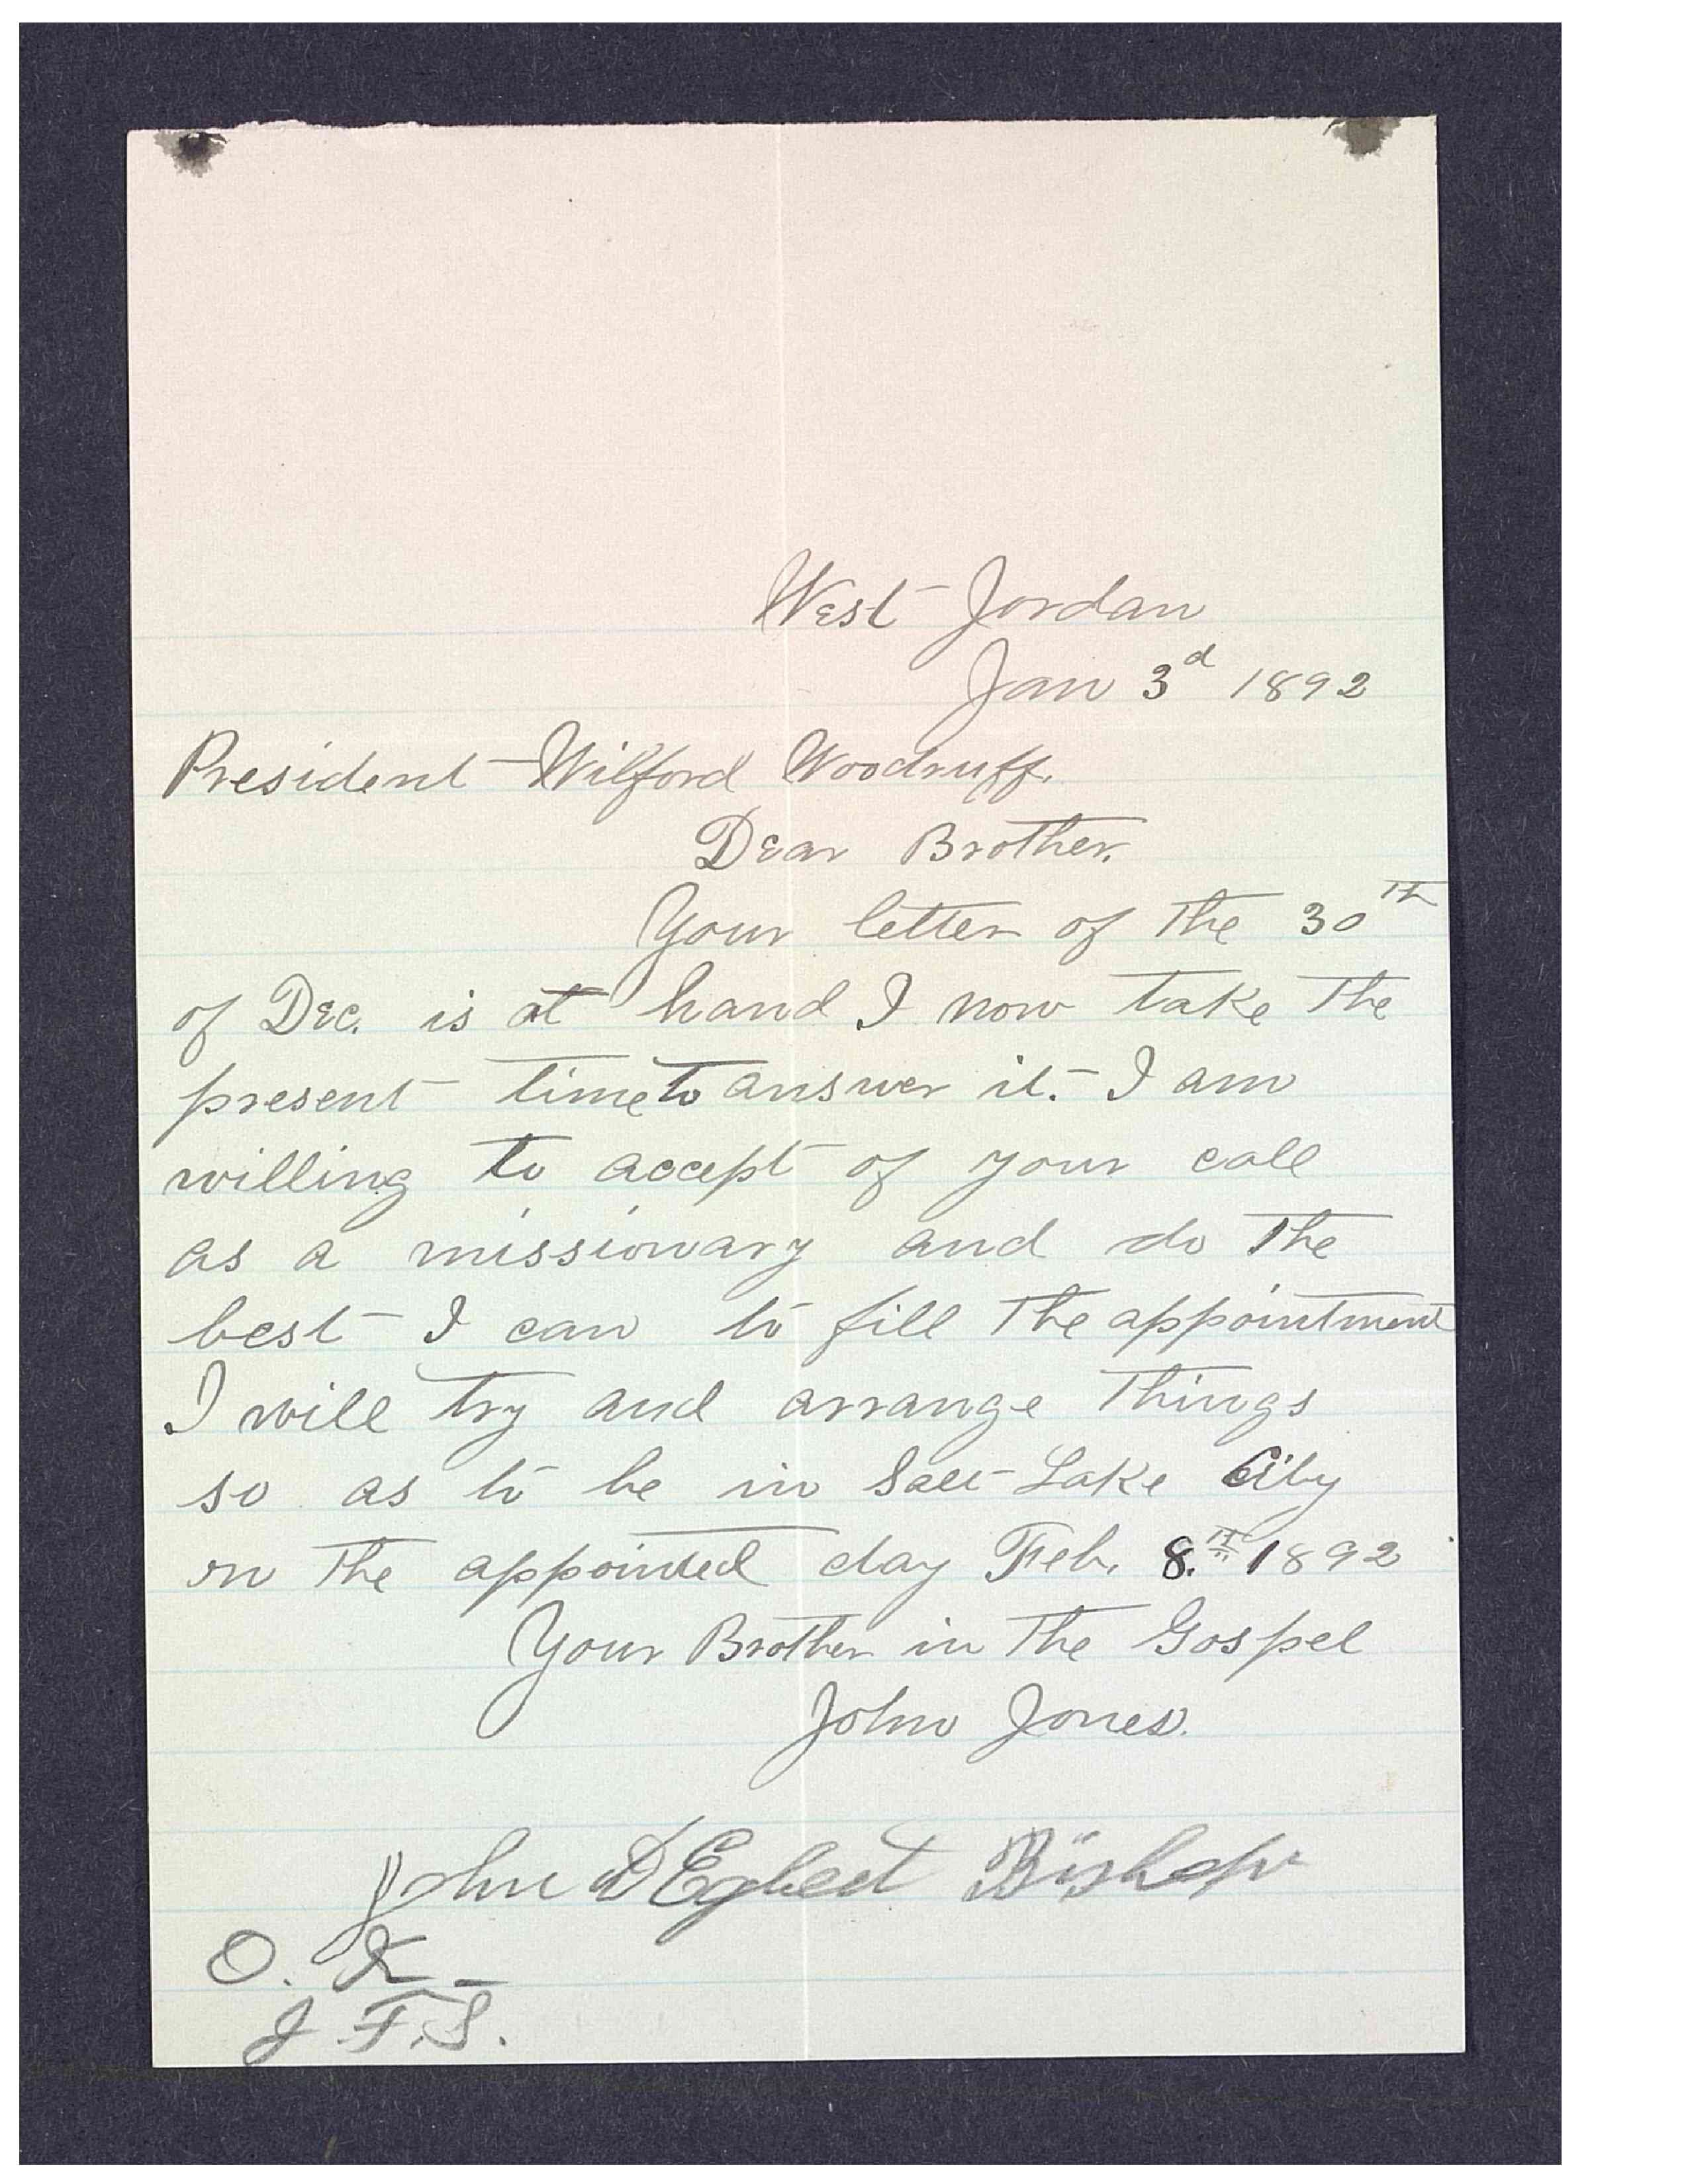 West Jordan
Jan 3d 1892
President Wilford Woodruff.
Dear Brother.
Your letter of the 30th
of Dec. is at hand I now take the
present time to answer it. I am
willing to accept of your call
as a missionary and do the
best I can to fill the appointment
I will try and arrange things
so as to be in Salt Lake City
on the appointed day Feb. 8.th 1892
Your Brother in the Gospel
John Jones.
John D Egbert Bishop
O. K_
J. F. S.